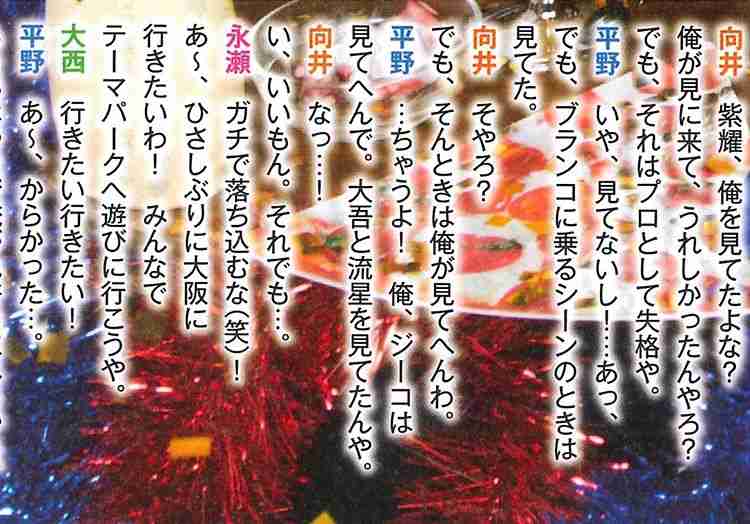 向井　紫耀、俺を見てたよな？
俺が見に来て、うれしかったんやろ？
でも、それはプロとして失格や。
平野　いや、見てないし！…あっ、
でも、ブランコに乗るシーンのときは
見てた。
向井　そやろ？
でも、そんときは俺が見てへんわ。
平野　…ちゃうよ！　俺、ジーコは
見てへんで。大吾と流星を見てたんや。
向井　なっ…！
い、いいもん。それでも…。
永瀬　ガチで落ち込むな（笑）！
あ〜、ひさしぶりに大阪に
行きたいわ！　みんなで
テーマパークへ遊びに行こうや。
大西　行きたい行きたい！
平野　あ〜、からかった…。